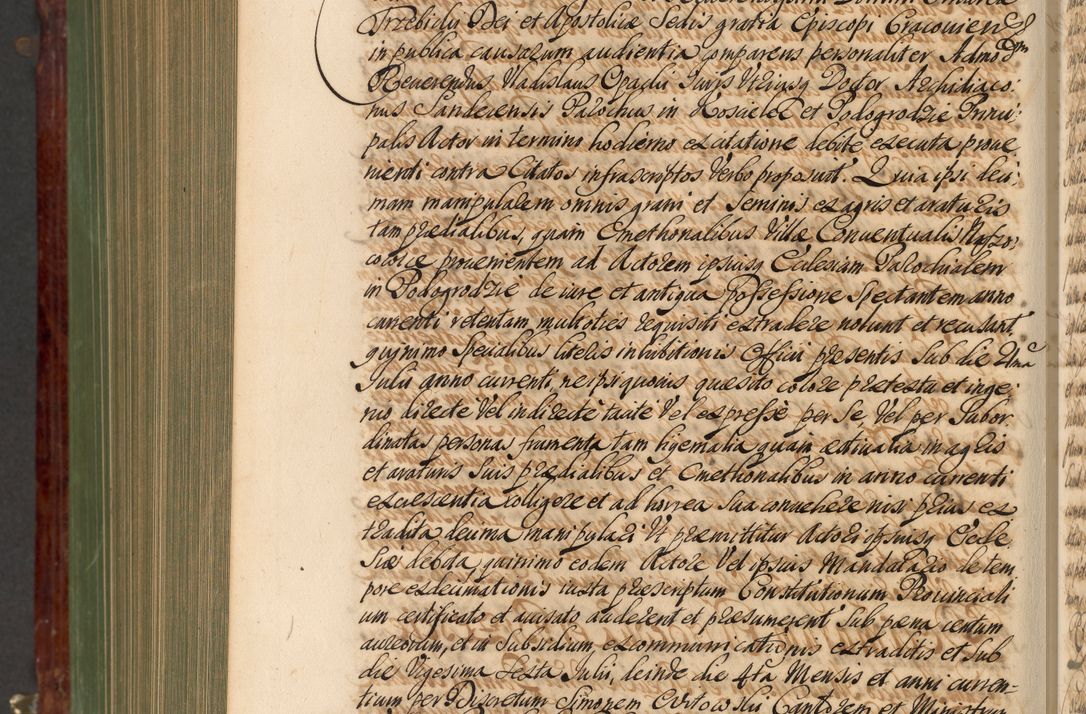 Trzebicky Dei et Apostolicæ Sedis gratia Episcopi Cracouien:
in publica causarum audientia comparens personaliter Admodm
Reuerendus Vladislaus Opacki Iuris Vtriusq Doctor Archidiaco:
nus Sandecensis Parochus in Kosielec et Podogrodzie Princi:
palis Actor in termino hodierno ex citatione debite executa proue
nienti contra Citatos infrascriptos Verbo proposuit. Quia ipsi deci:
mam manipularem omnis grani et Seminis ex agris et araturis
tam prædialibus, quam Cmethonalibus Villæ Conuentualis
prouenientem ad Actorem ipsiusq Ecclesiam Parochialem
in Podogrodzie de iure, et antiqua possessione Spectantem anno
currenti retentam, multoties requisiti extradere nolunt et recusant,
quinimo Specialibus literis inhibitionis Officii præsentis Sub die 2ma
Iulii anno currenti, ne ipsi quouis quæsito colore prætextu et inge:
nio directe Vel indirecte tacite Vel expresse per Se, Vel per Subor
dinatas personas frumenta tam hyemalia quam æstiualia in agris
et araturis Suis prædialibus et Cmethonalibus in anno currenti
excrescentia colligere et ad horrea Sua conuehere nisi prius ex
tradita decima manipulari Vt præmittitur Actori ipsiusq Eccle
siæ debita, quinimo eodem Actore Vel ipsius Mandatario de tem
pore exdecimationis iuxta præscriptum Constitutionum Prouinciali
um certificato et auisato auderent et præsumerent Sub pæna centum
aureorum, et in Subsidium excommunicationis extraditis et Sub
die Vigesima Sexta Iulii, deinde die 4ta Mensis et anni curren-
tium per Discretum Simonem Cantorem et Ministrum